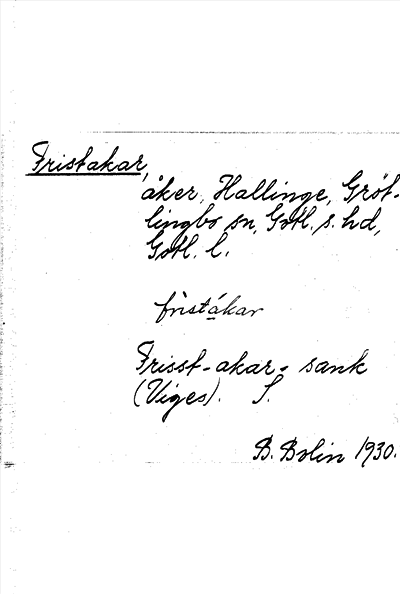 Fristakar,
åker, Hallinge, Gröt-
lingbo sn, Gotl. s. hd,
Gotl. l.
fristákar
Frisst-akar- sank
(Viges). S.
B. Bolin 1930.